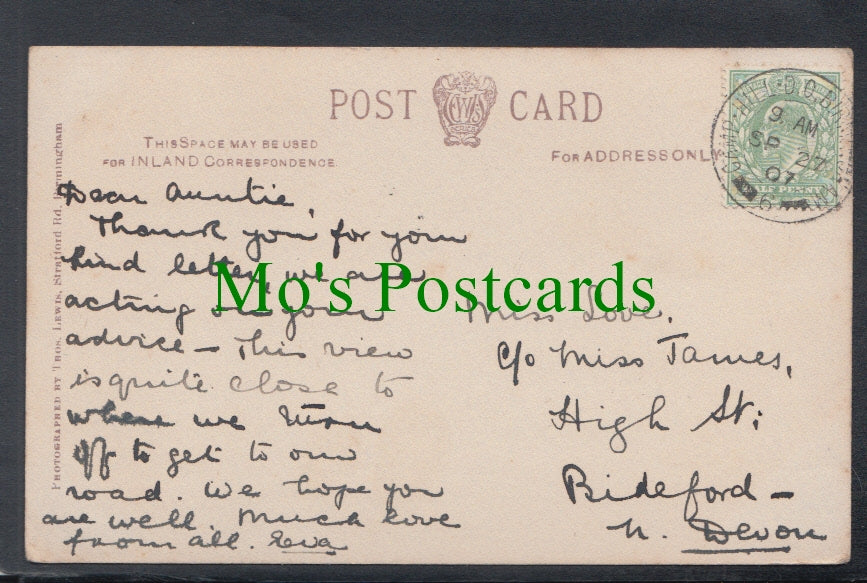 POST CARD
LEWIS
THIS SPACE MAY BE USED
FOR INLAND CORRESPONDENCE.
FOR ADDRESS ONLY
9 AM
SP 27
07
HALF PENNY
PHOTOGRAPHED BY THOS. LEWIS, STRATFORD RD, BIRMINGHAM
Dear Auntie,
Thank you for your
kind letter, we are
acting on your
advice — This view
is quite close to
where we turn
off to get to our
road. We hope you
are well. Much love
from all. Eva
Miss Love,
c/o Miss James,
High St:
Bideford —
N. Devon
Mo's Postcards